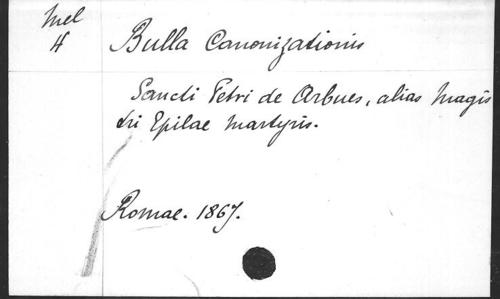 Mel
H
Bulla Canonizationis
Sancti Petri de Arbues, alias Magis
tri Epilae Martyris.
Romae. 1867.